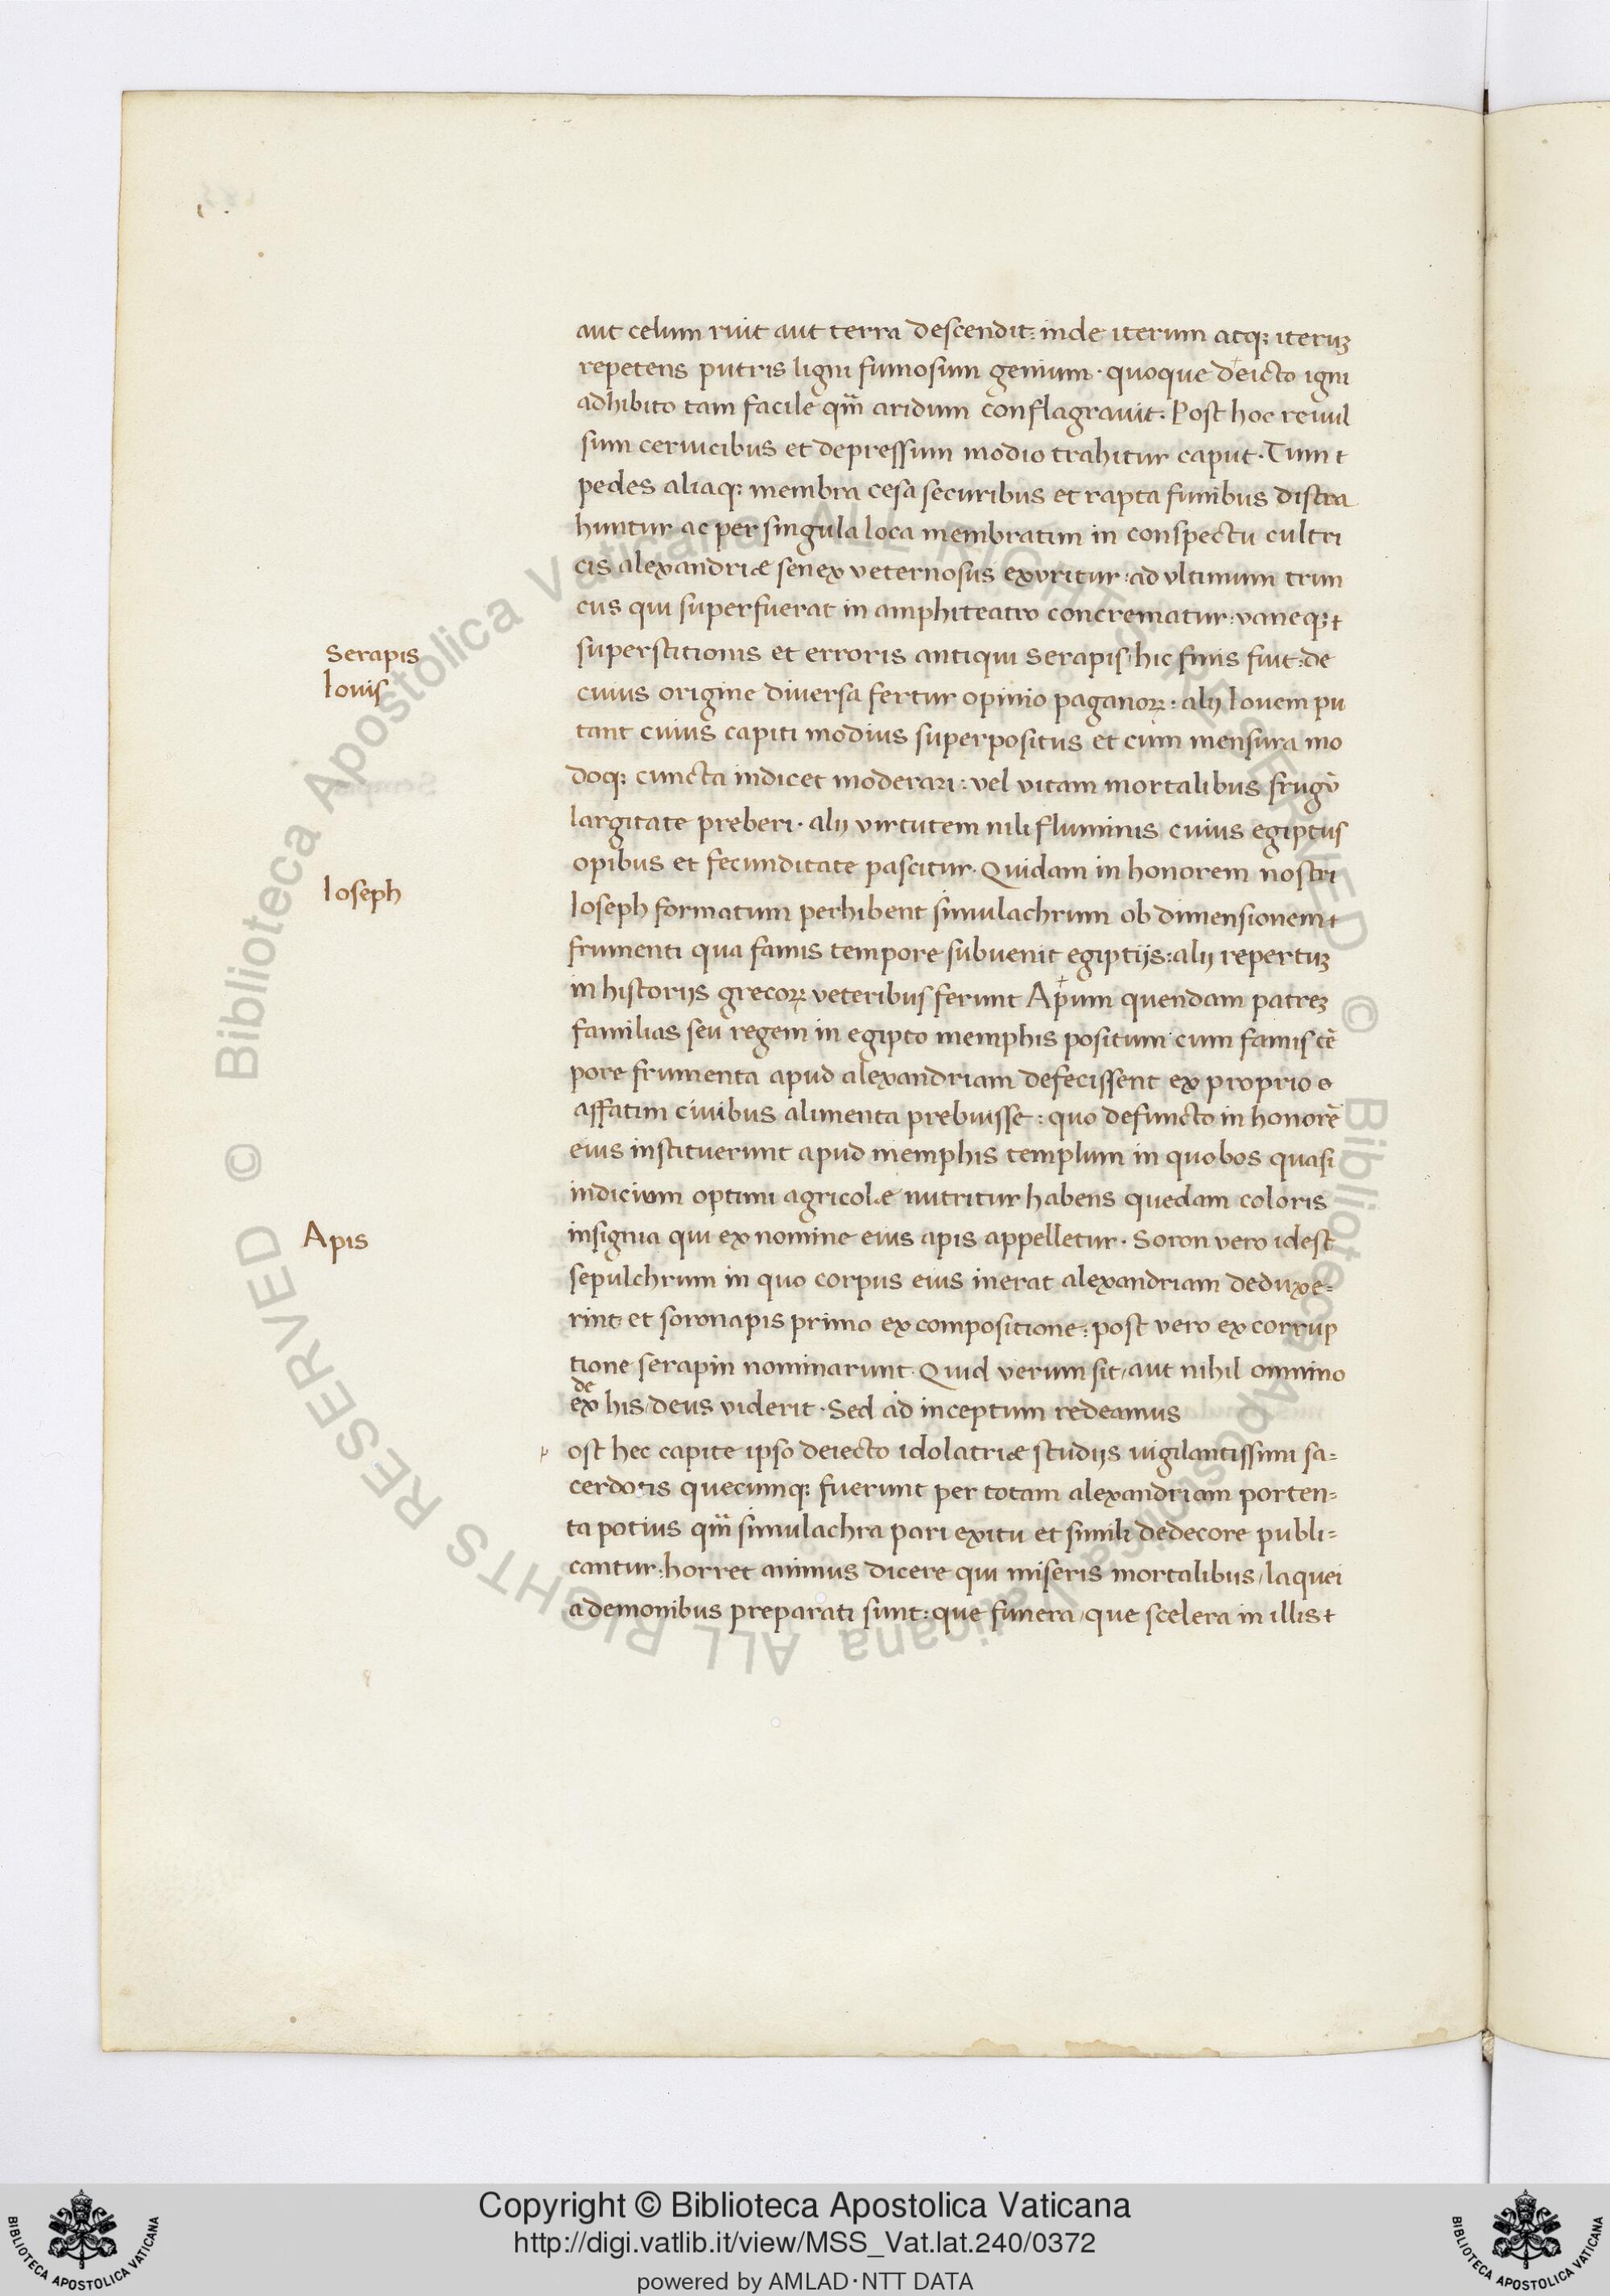 aut celum ruit aut terra descendit: inde iterum atq; iteruz
repetens putris ligni fumosum genium · quoque deicto igni
adhibito tam facile qm̅ aridum conflagravit. Post hoc reuul
sum ceruicibus et depressum modio trahitur caput. Tum t
pedes aliaq; membra cesa securibus et rapta funibus distra
huntur ac per singula loca membratim in conspectu cultri
cis alexandriæ senex veternosus exuritur: ad vltimum trun
cus qui superfuerat in amphiteatro concrematur: vaneq; t
Serapis
superstitionis et erroris antiqui Serapis/ hic finis fuit: de
Iouis
cuius origine diuersa fertur opinio paganoꝝ: alij Iouem pu
tant cuius capiti modius superpositus et cum mensura mo
doq; cuncta indicet moderari: vel vitam mortalibus frugū
largitate preberi. alij virtutem nili fluminis cuius egiptus
opibus et fecunditate pascitur. Quidam in honorem nostri
Ioseph
Ioseph formatum perhibent simulachrum ob dimensionem t
frumenti qua famis tempore subuenit egiptijs: alij repertuz
in historijs grecoꝝ veteribus ferunt Apium quendam patrez
familias seu regem in egipto memphis positum cum famis tē
pore frumenta apud alexandriam defecissent ex proprio o
affatim ciuibus alimenta prebuisse: quo defuncto in honorē
eius instituerunt apud memphis templum in quo bos quasi
indicium optimi agricolæ nutritur habens quedam coloris
Apis
insignia qui ex nomine eius apis appelletur. Soron vero idest
sepulchrum in quo corpus eius inerat alexandriam deduxe=
rint et soronapis primo ex compositione: post vero ex corrup
tione serapin nominarunt. Quid verum sit/ aut nihil omnino
de
ex his/ deus viderit. Sed ad inceptum redeamus
p ost hec capite ipso deiecto idolatriæ studijs uigilantissimi sa=
cerdotis quecumq; fuerunt per totam alexandriam porten=
ta potius qm̅ simulachra pari exitu et simili dedecore publi=
cantur: horret animus dicere qui miseris mortalibus/ laquei
a demonibus preparati sunt: que funera/ que scelera in illis t
Copyright © Biblioteca Apostolica Vaticana
http://digi.vatlib.it/view/MSS_Vat.lat.240/0372
powered by AMLAD·NTT DATA